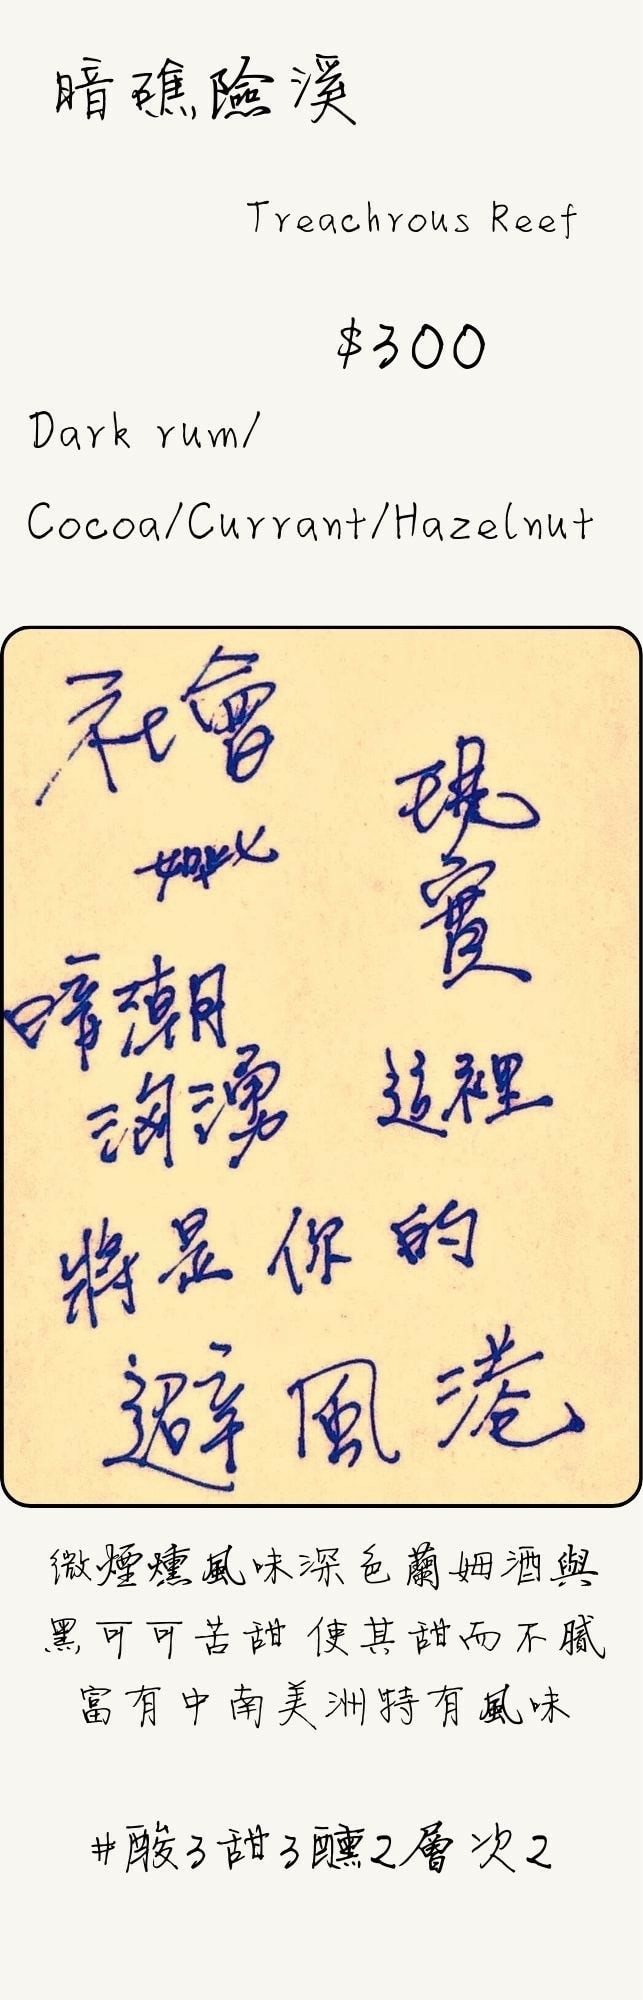 暗礁險溪
Treachrous Reef
$300
Dark rum/
Cocoa/Currant/Hazelnut
社會
現實
如此
暗潮
洶湧
這裡
將是你的
避風港
微煙燻風味深色蘭姆酒與
黑可可苦甜 使其甜而不膩
富有中南美洲特有風味
#酸3甜3醺2層次2